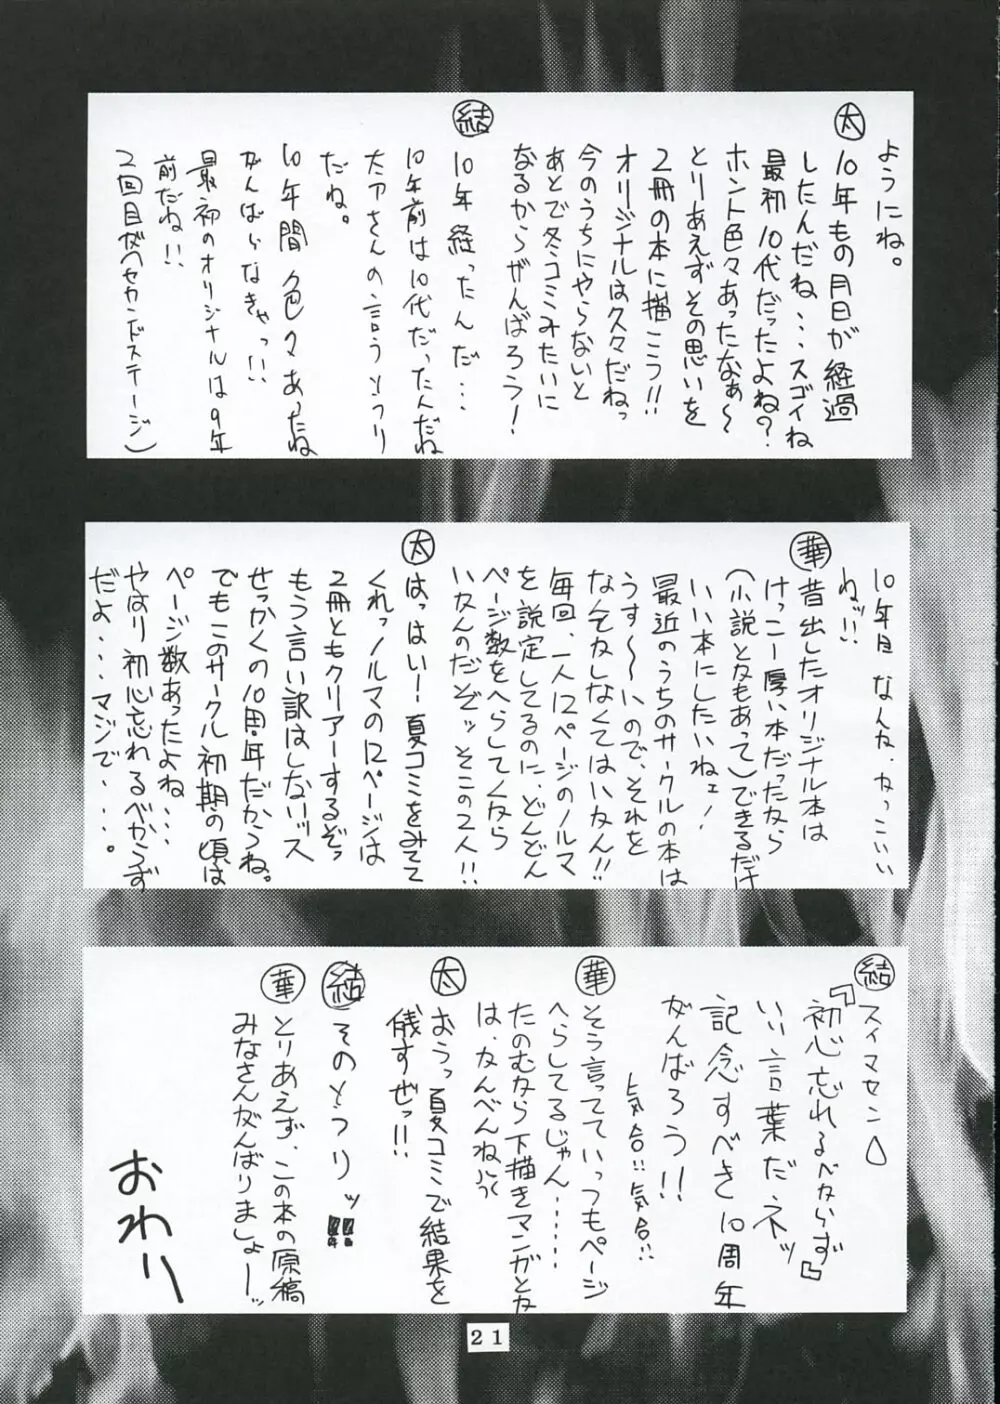 ようにね。
太
10年もの月日が経過
したんだね、、、スゴイね
最初10代だったよね?
ホント色々あったなぁ〜
とりあえずその思いを
2冊の本に描こう!!
オリジナルは久々だねっ
今のうちにやらないと
あとで冬コミみたいに
なるからがんばろう!
結
10年経ったんだ…
10年前は10代だったんだね
太アさんの言うとうり
だね。
10年間色々あったね
がんばらなきゃっ!!
最初のオリジナルは9年
前だね!!
2回目が(セカンドステージ)
10年目なんだ、かっこいい
ねッ!!
華
昔出したオリジナル本は
けっこー厚い本だったなら
(小説とかもあって)できるだけ
いい本にしたいねェ!
最近のうちのサークルの本は
うす〜〜いので、それを
なんとかしなくてはいかん!!
毎回、一人12ページのノルマ
を設定してるのに、どんどん
ページ数をへらしてくなら
いかんのだぞッそこの2人!!
太
はっはい!夏コミをみてて
くれっノルマの12ページは
2冊ともクリアーするぞっ
もう言い訳はしないッス
せっかくの10周年だからね。
でもこのサークル初期の頃は
ページ数あったよね、、、
やはり初心忘れるべからず
だよ、、、マジで、、、、。
結
スイマセン
『初心忘れるべからず』
いい言葉だネッ
記念すべき10周年
がんばろう!!
気合!!気合!!
華
そう言っていっつもページ
へらしてるじゃん……
たのむなら下描きマンガとか
は、かんべんね
太
おうっ夏コミで結果を
残すぜっ!!
結
そのとうりッ!!
華
とりあえず、この本の原稿
みなさんがんばりましょーッ
おわり
21